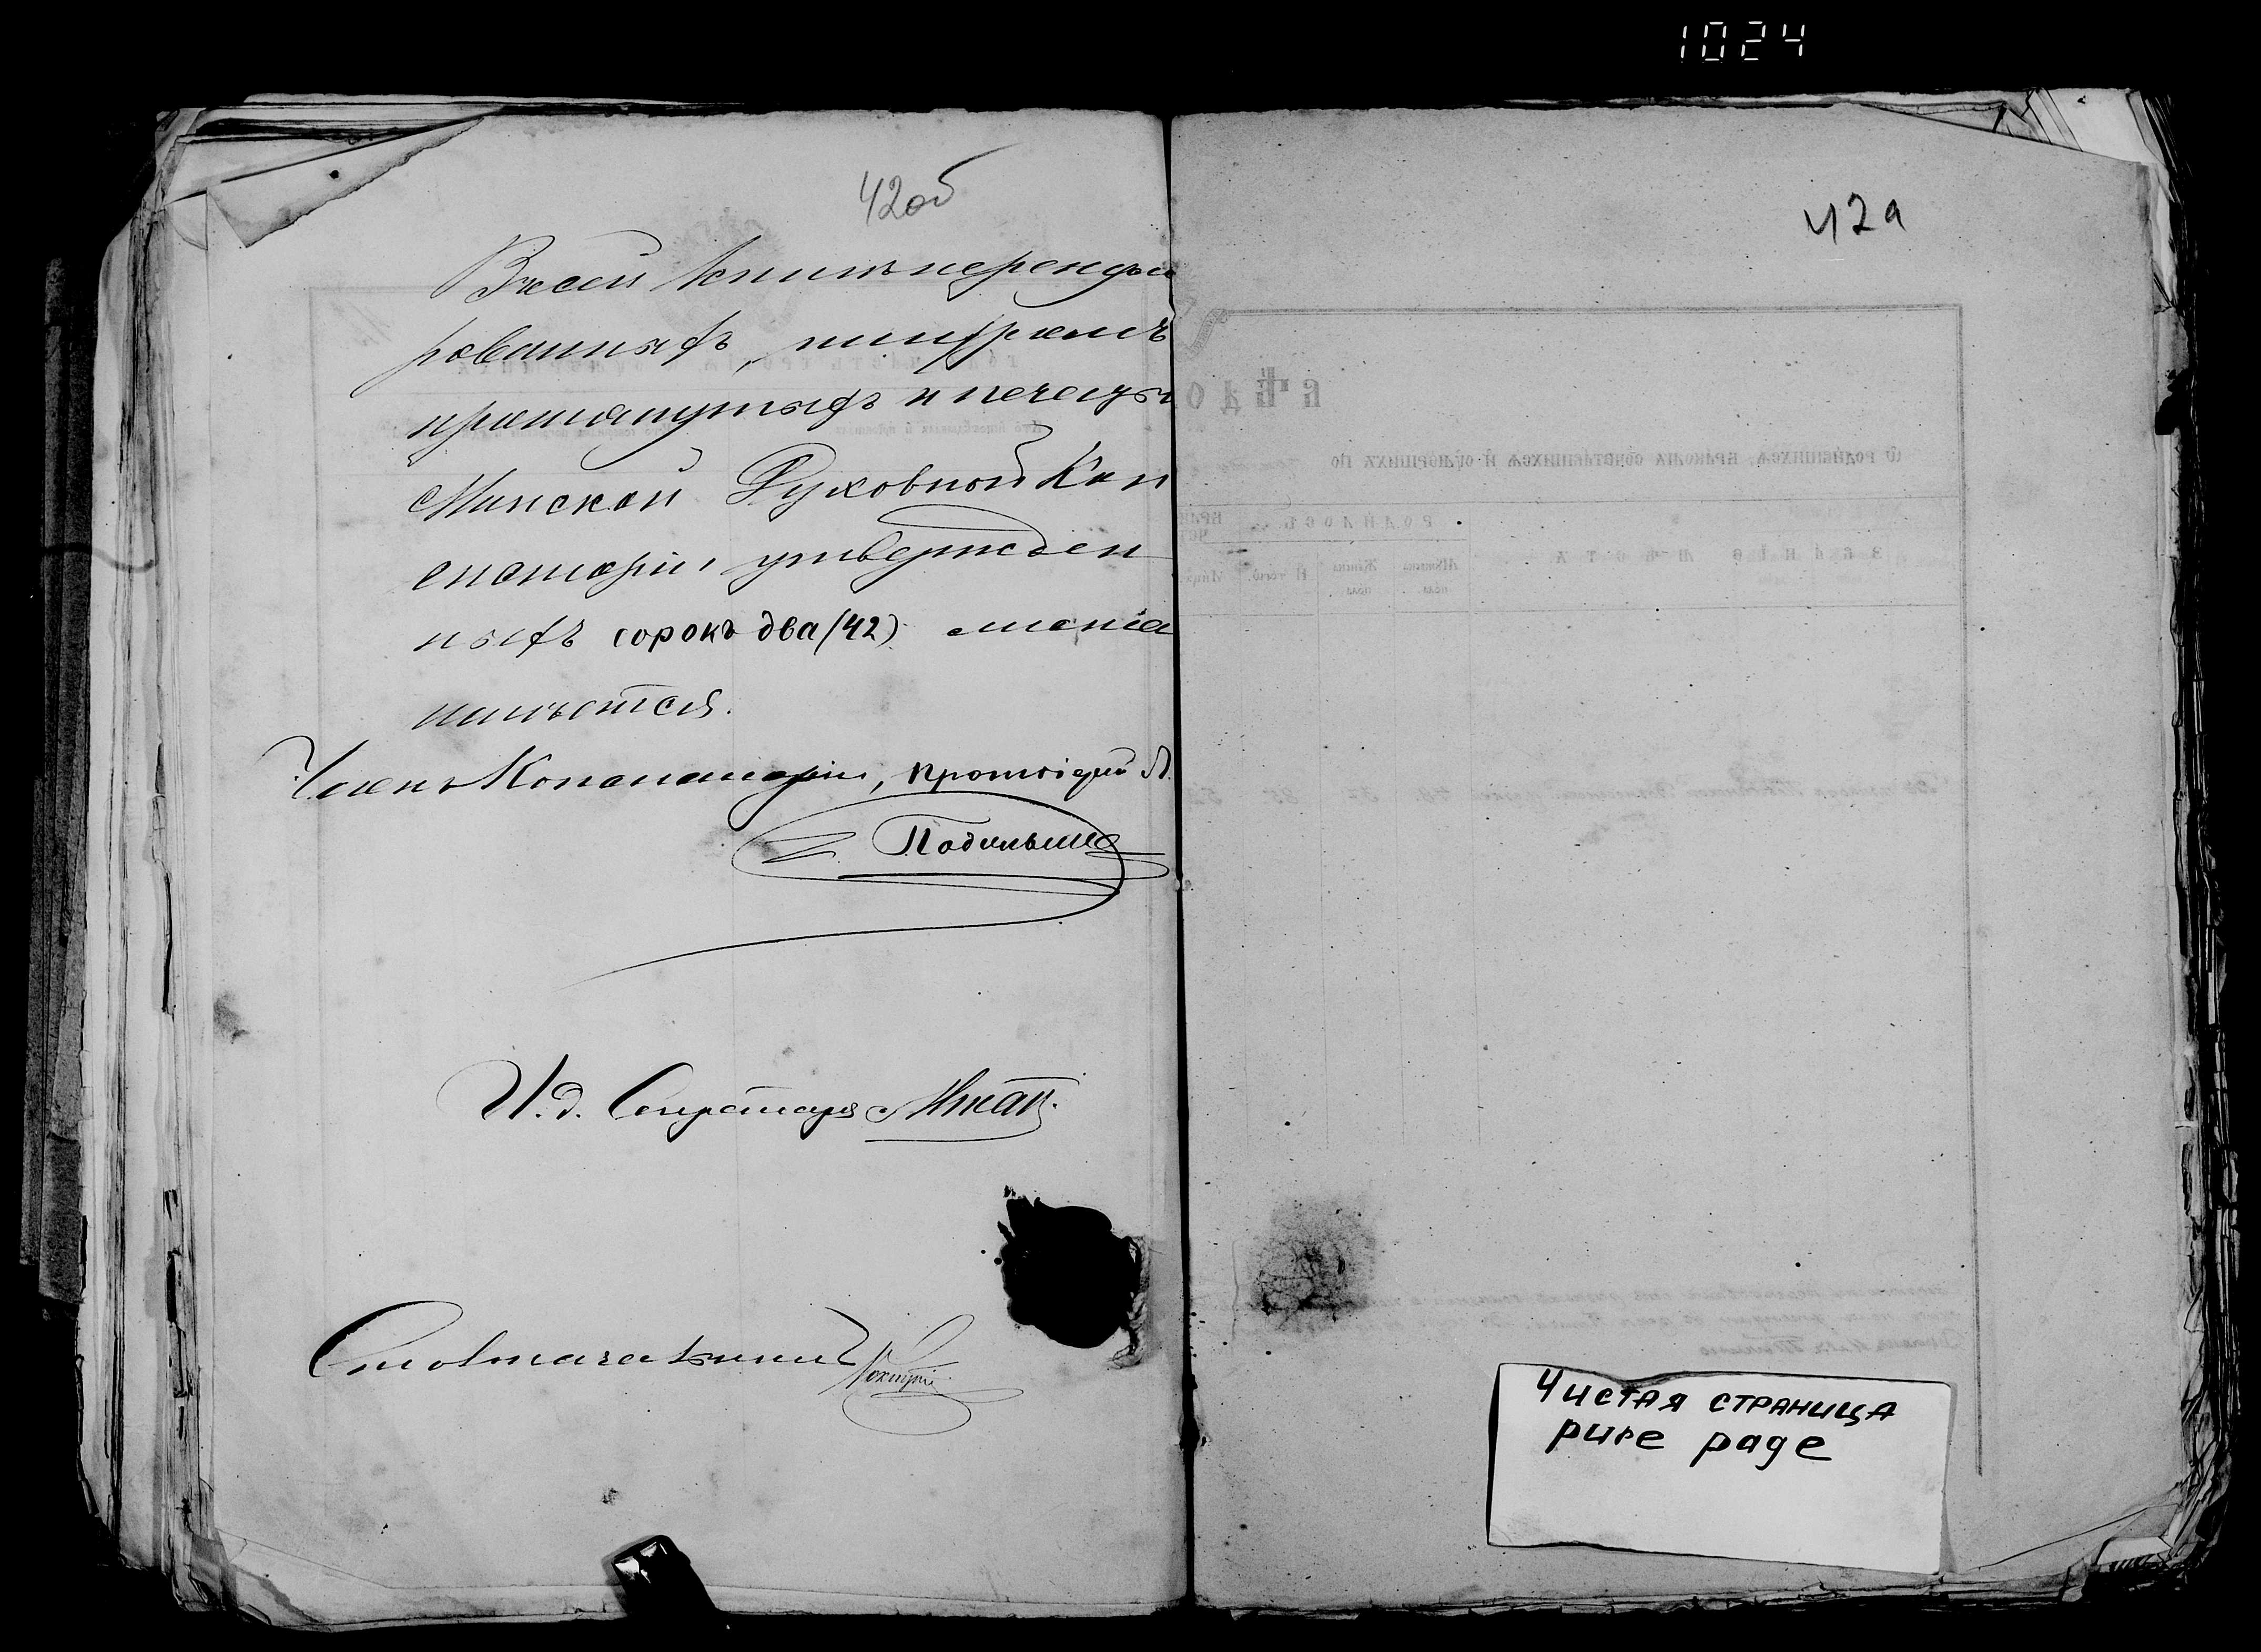 1024
42об
Въ сей книгѣ перенуме
рованныхъ, шнуромъ
протянутыхъ и печатью
Минской Духовной Кон
систоріи утвержден
ныхъ сорокъ два (42) листа
имѣется.
Членъ Консисторіи, Протоіерей
И. д. Секретаря
Столоначальникъ
42а
Чистая страница
pure page